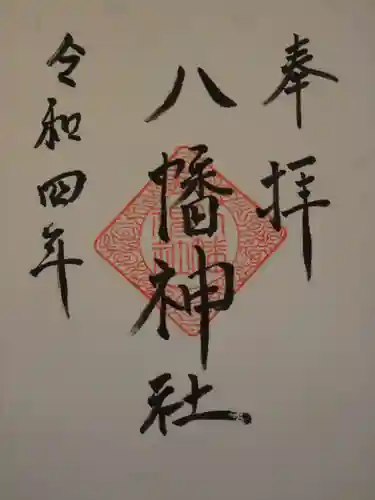 奉拝
八幡神社
令和四年